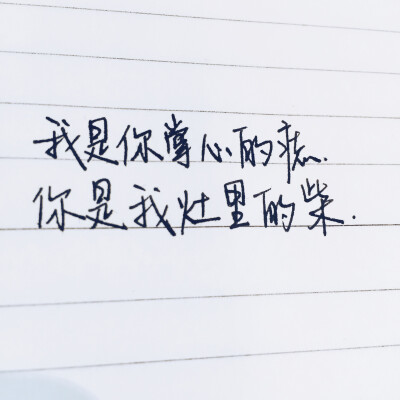 我是你掌心的痣.
你是我灶里的柴.